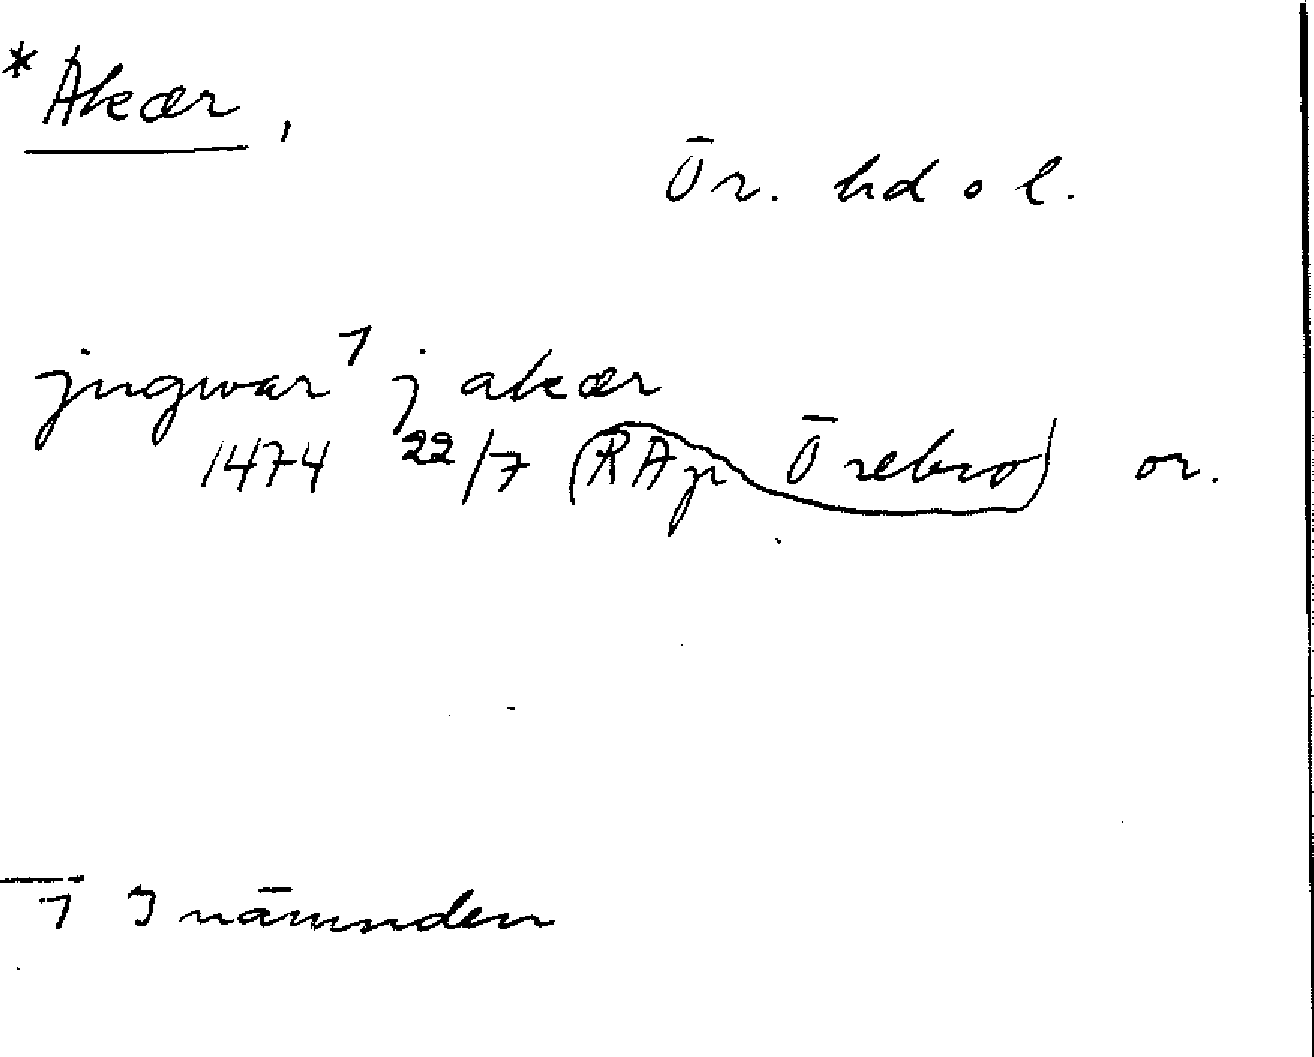 *Akær,
Ör. hd o l.
jngwar¹ j akær
1474 22/7 (RAp Örebro) or.
1 I nämnden